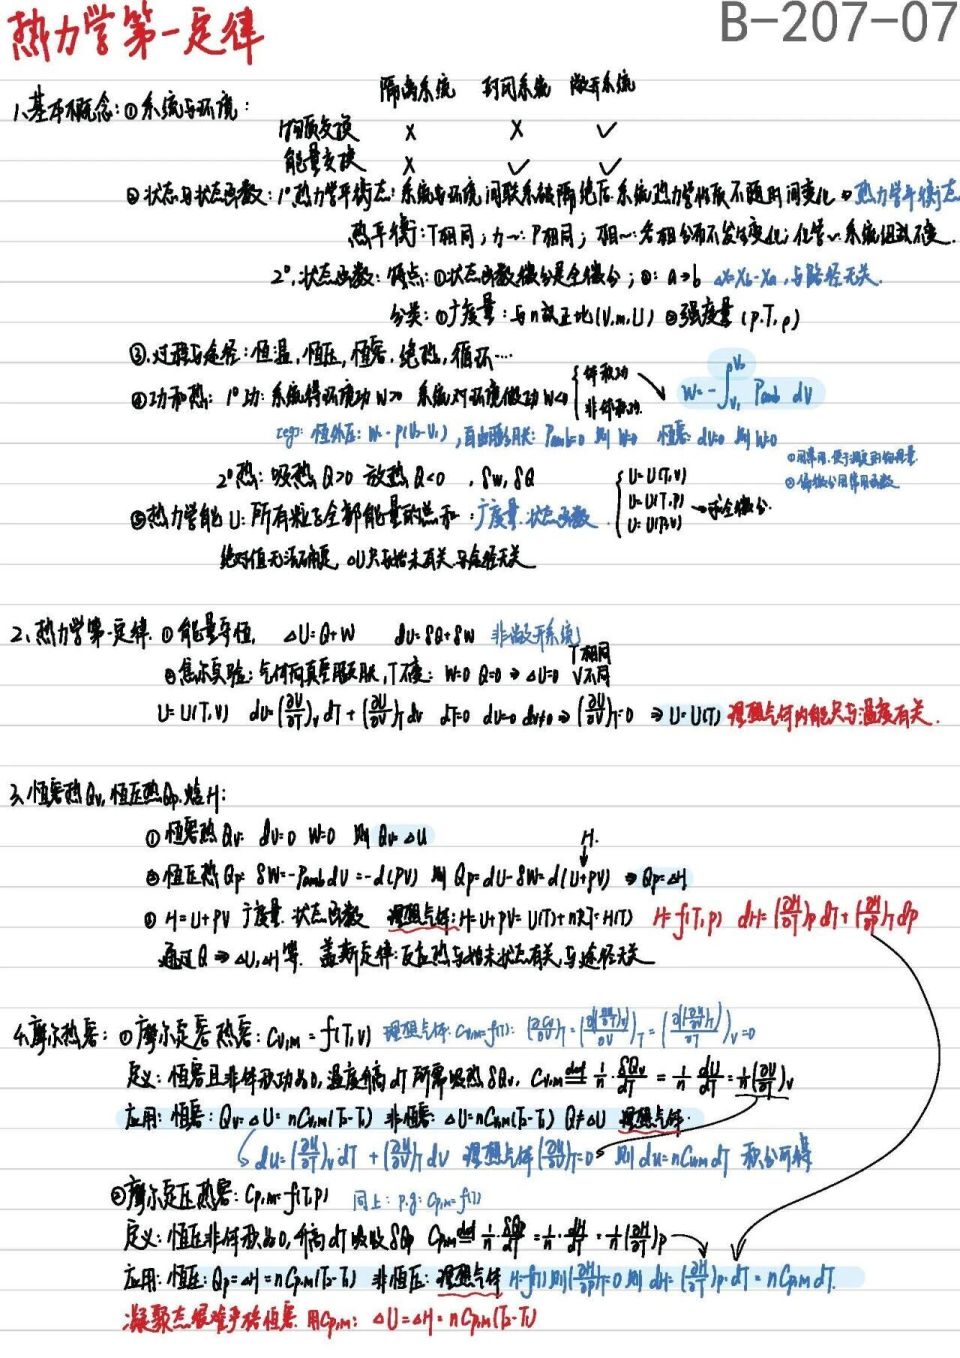 B-207-07
热力学第一定律
隔离系统 封闭系统 敞开系统
1、基本概念:①系统与环境:
物质交换 × × ✓
能量交换 × ✓ ✓
②状态与状态函数:1°热力学平衡态:系统与环境间联系被隔绝后系统热力学性质不随时间变化⇒热力学平衡态
热平衡:T相同;力~:P相同;相~:各相分布不发生变化;化学~:系统组成不变.
2°.状态函数:特点:①状态函数微分是全微分;②:a→b ΔX=Xb-Xa,与路径无关.
分类:①广度量:与n成正比(V,m,U) ②强度量(p,T,ρ)
③.过程与途径:恒温,恒压,恒容,绝热,循环…
④功和热:1°功:系统得环境功W>0 系统对环境做功W<0 { 体积功 非体积功 W=-∫V₁V₂ Pamb dV
eg: 恒外压:W=-P(V₂-V₁),自由膨胀:Pamb=0 则W=0 恒容:dV=0 则W=0
2°热:吸热Q>0 放热Q<0 ,δW,δQ
①用常用,便于测定的物理量
②偏微分用常用函数
⑤热力学能U:所有粒子全部能量的总和:广度量.状态函数 { U=U(T,V) U=U(T,P) U=U(P,V) → 求全微分.
绝对值无法确定,ΔU只与始末有关与途径无关
2、热力学第一定律.①能量守恒, ΔU=Q+W dU=δQ+δW 非敞开系统
②焦尔实验:气体向真空膨胀,T不变:W=0 Q=0⇒ΔU=0 T相同 V不同
U=U(T,V) dU=(∂U/∂T)V dT+(∂U/∂V)T dV dT=0 dU=0 dV≠0⇒(∂U/∂V)T=0 ⇒U=U(T) 理想气体内能只与温度有关.
3、恒容热Qv,恒压热Qp,焓H:
①恒容热Qv: dV=0 W=0 则Qv=ΔU
H.
②恒压热Qp: δW=-PambdV=-d(PV) 则Qp=dU-δW=d(U+PV) ⇒Qp=ΔH
③H=U+PV 广度量.状态函数 理想气体:H=U+PV=U(T)+nRT=H(T) H=f(T,p) dH=(∂H/∂T)p dT+(∂H/∂P)T dp
通过Q⇒ΔU,ΔH等. 盖斯定律:反应热与始末状态有关,与途径无关
4.摩尔热容:①摩尔定容热容:Cv,m=f(T,V) 理想气体:Cv,m=f(T): (∂Cv/∂V)T=(∂(∂U/∂T)V/∂V)T=(∂(∂U/∂V)T/∂T)V=0
定义:恒容且非体积功为0,温度升高dT所需吸热δQv, Cv,m def= 1/n·δQv/dT=1/n·dU/dT=1/n(∂U/∂T)V
应用:恒容:Qv=ΔU=nCv,m(T₂-T₁) 非恒容:ΔU=nCv,m(T₂-T₁) Q≠ΔU 理想气体.
dU=(∂U/∂T)V dT+(∂U/∂V)T dV 理想气体(∂U/∂V)T=0 则dU=nCv,mdT 积分可得
②摩尔定压热容:Cp,m=f(T,P) 同上:p.g: Cp,m=f(T)
定义:恒压非体积为0,升高dT吸收δQp Cp,m def= 1/n·δQp/dT=1/n·dH/dT=1/n(∂H/∂T)p
应用:恒压:Qp=ΔH=nCp,m(T₂-T₁) 非恒压:理想气体 H=f(T)则(∂H/∂p)T=0 则dH=(∂H/∂T)p·dT=nCp,mdT.
凝聚态很难严格恒容.用Cp,m: ΔU=ΔH=nCp,m(T₂-T₁)